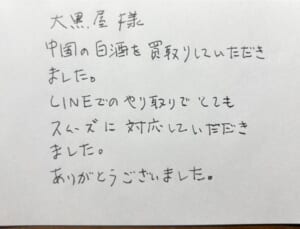 大黒屋 様
中国の白酒を買取りしていただき
ました。
LINEでのやり取りでとても
スムーズに対応していただき
ました。
ありがとうございました。